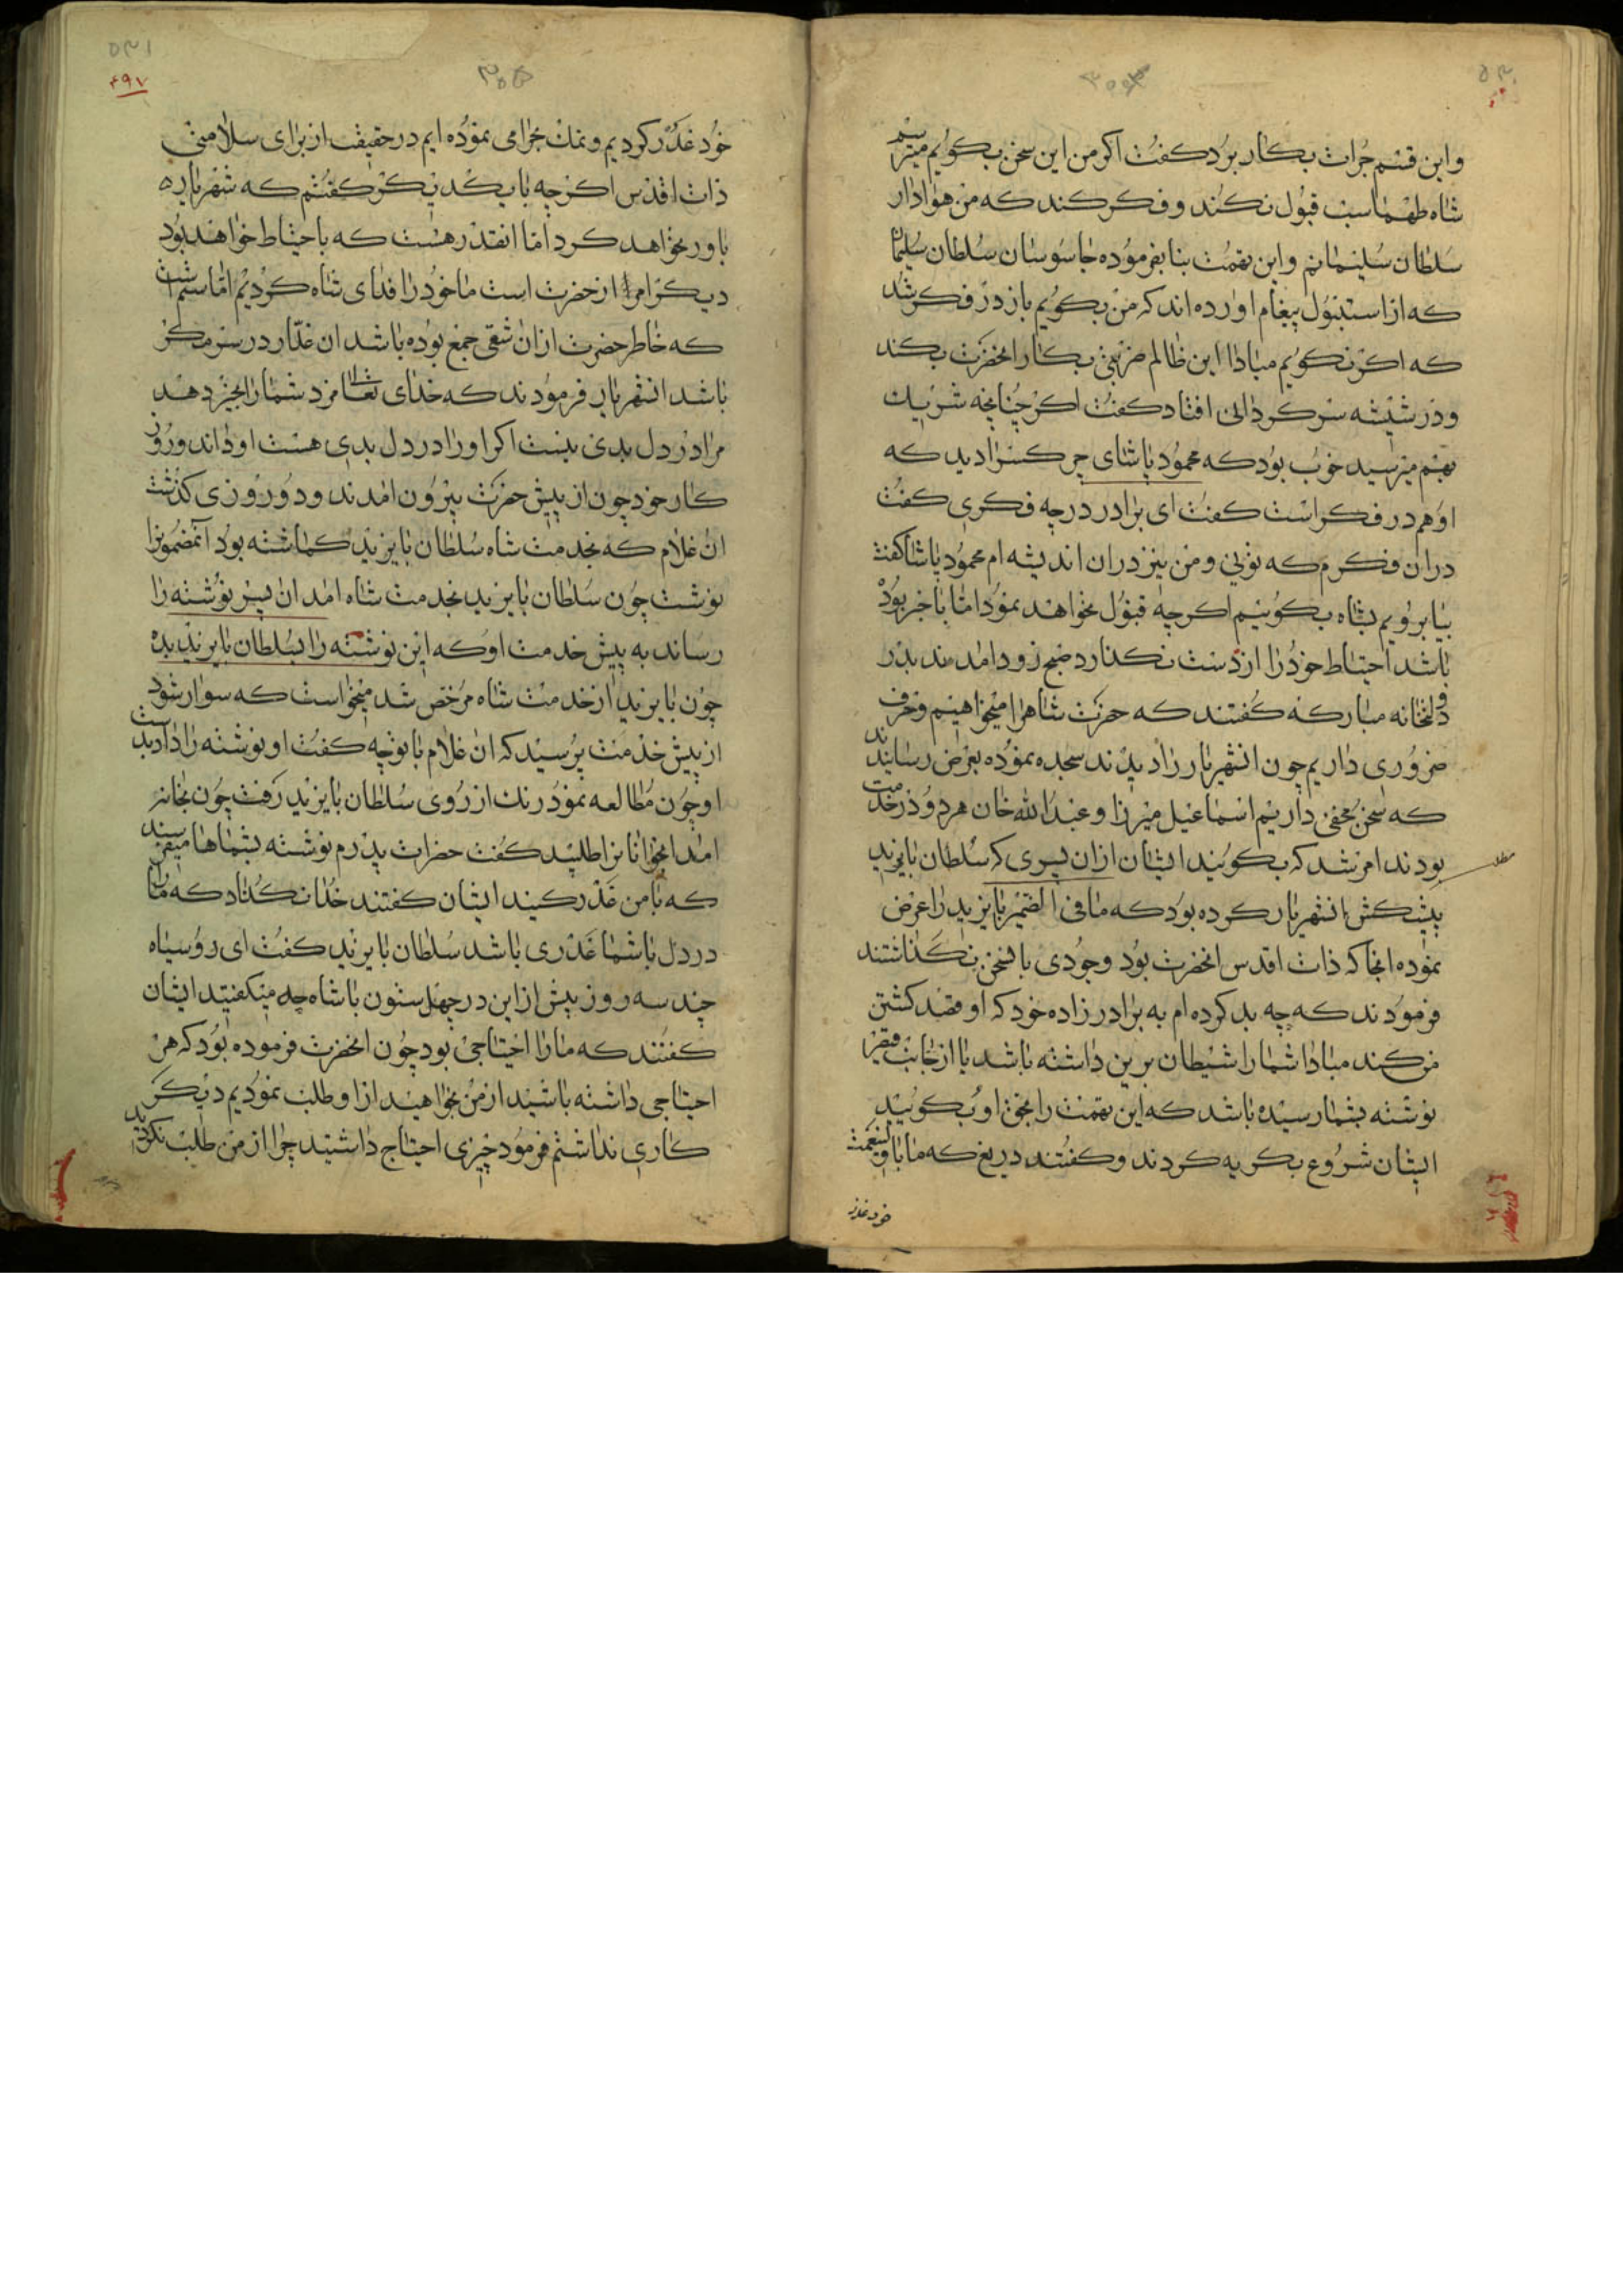 و این قسم جرات بکار برد کفت اکر من این سخن بکویم میترسم
شاه طهماسب قبول نکند و فکر کند که من هوادار
سلطان سلیمانم و این تهمت بنا بفرموده جاسوسان سلطان سلیمان
که از استنبول پیغام اورده اند که من بکویم باز در فکر شد
که اکر نکویم مبادا این ظالم ضربتی بکار انحضرت بکند
و در شیشه سرکردانی افتاد کفت اکر چنانچه شریک
بهم میرسید خوب بود که محمود پاشای چرکس را دید که
او هم در فکر است کفت ای برادر در چه فکری کفت
در ان فکرم که تویی و من نیز در ان اندیشه ام محمود پاشا کفت
بیا برویم بشاه بکوییم اکرچه قبول نخواهد نمود اما با خبر بوده
باشد احتیاط خود را از دست نکذارد صبح زود امدند بدر
دولتخانه مبارکه کفتند که حضرت شاه را میخواهیم و حرف
ضروری داریم چون انشهریار را دیدند سجده نموده بعرض رسانیدند
که سخن مخفی داریم اسماعیل میرزا و عبدالله خان هر دو در خدمت
بودند امر شد که بکویند ایشان از ان پسری که سلطان بایزید
پیشکش انشهریار کرده بود که ما فی الضمیر بایزید را عرض
نموده انجا که ذات اقدس انحضرت بود وجودی باسخن نکذاشتند
فرمودند که چه بد کرده ام به برادر زاده خود که او قصد کشتن
من کند مبادا شما را شیطان برین داشته باشد یا از جانب قیصر
نوشته بشما رسیده باشد که این تهمت را بحق او بکویید
ایشان شروع بکریه کردند و کفتند دریغ که ما با ولینعمت
خود غدر
مطلب
خود غدر کردیم و نمک بحرامی نموده ایم در حقیقت از برای سلامتی
ذات اقدس اکرچه با یکدیکر کفتیم که شهریار
باور نخواهد کرد اما انقدر هست که با احتیاط خواهند بود
دیکر امر از حضرت است ما خود را فدای شاه کردیم اما
که خاطر حضرت از ان شقی جمع بوده باشد ان غدار در سر مکر
باشد انشهریار فرمودند که خدای تعالی مزد شما را بخیر دهد
مرا در دل بدی نیست اکر او را در دل بدی هست او داند و روز
کار خود چون از پیش حضرت بیرون امدند و دو روزی کذشت
ان غلام که بخدمت شاه سلطان بایزید کماشته بود انمضمونرا
نوشت چون سلطان بایزید بخدمت شاه امد ان پسر نوشته را
رساند به پیش خدمت او که این نوشته را بسلطان بایزید بده
چون بایزید از خدمت شاه مرخص شد میخواست که سوار شود
از پیش خدمت پرسید که ان غلام با تو چه کفت او نوشته را داد بدست
او چون مطالعه نمود رنک از روی سلطان بایزید رفت چون بخانه
امد اغوانانرا طلبید کفت حضرات پدرم نوشته بشماها میفرستد
که با من غدر کنید ایشان کفتند خدا نکناد که مارا
در دل با شما غدری باشد سلطان بایزید کفت ای روسیاه
چند سه روز پیش از این در چهل ستون با شاه چه میکفتید ایشان
کفتند که ما را احتیاجی بود چون انحضرت فرموده بود که هر
احتیاجی داشته باشید از من بخواهید از او طلب نمودیم دیکر
کاری نداشتیم فرمود چیزی احتیاج داشتید چرا از من طلب نکردید
۴۹۷
۵۳۱
۵۳۰
۳۰۵